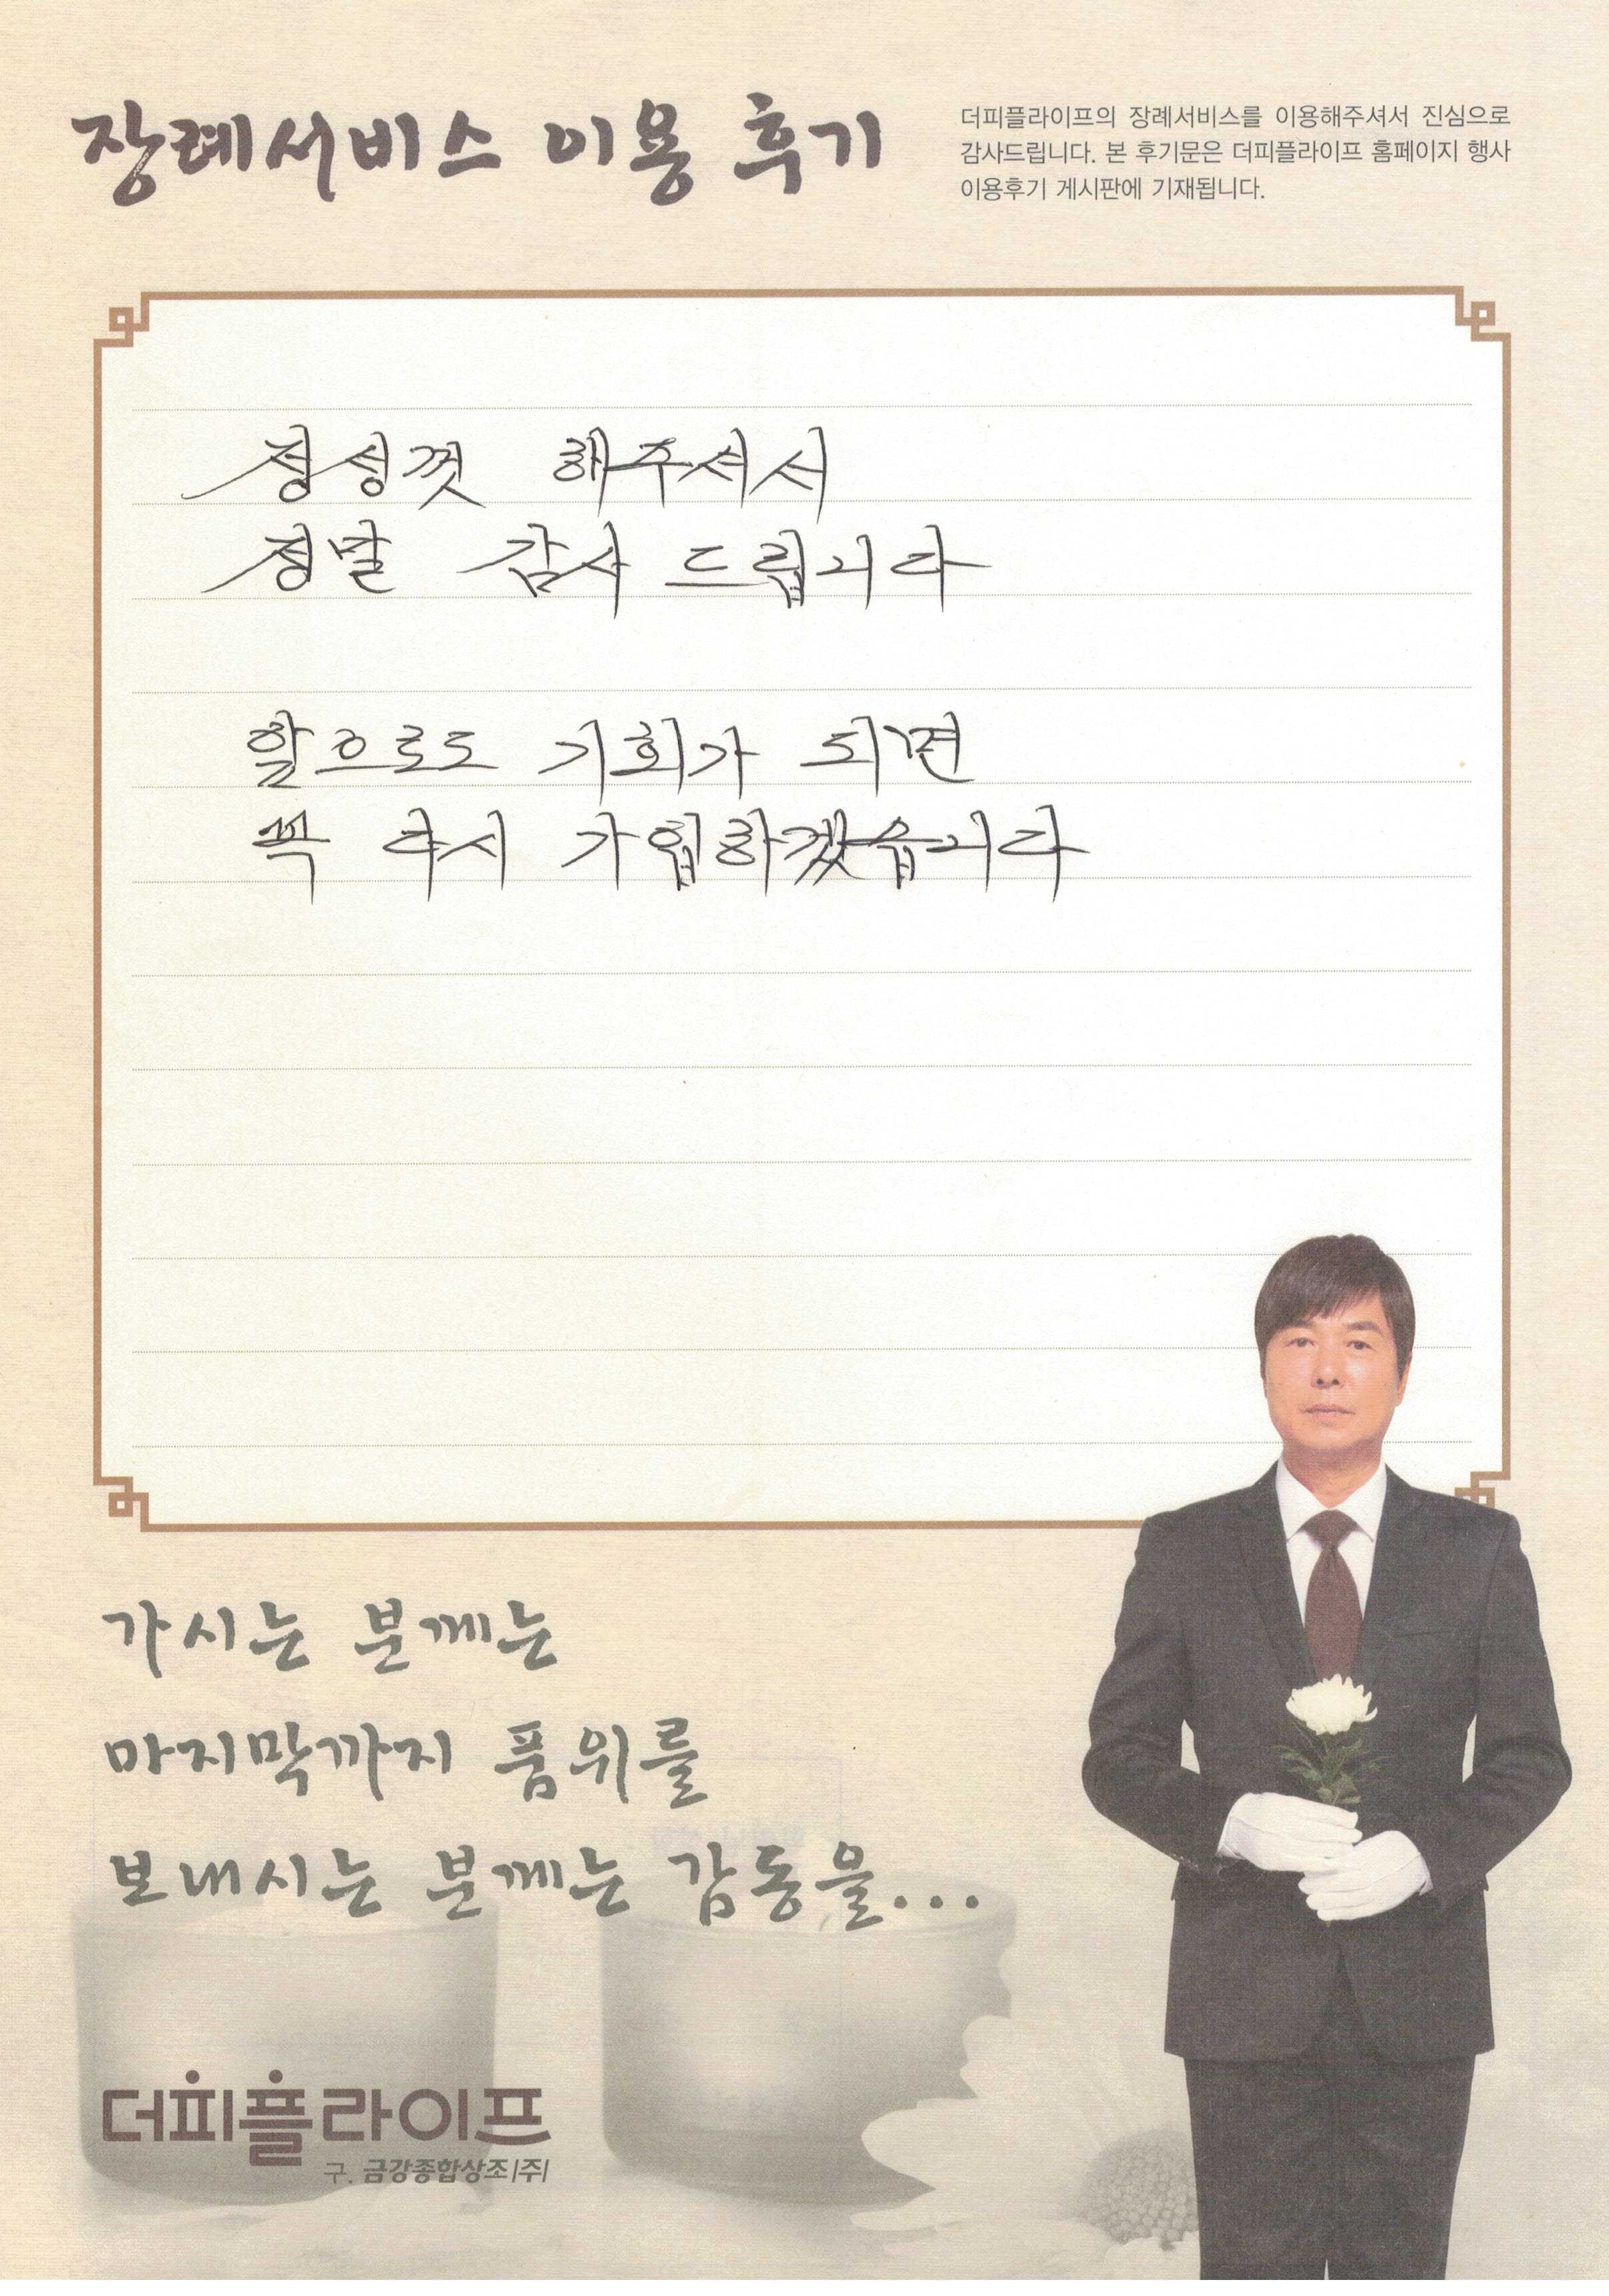 장례서비스 이용 후기
더피플라이프의 장례서비스를 이용해주셔서 진심으로
감사드립니다. 본 후기문은 더피플라이프 홈페이지 행사
이용후기 게시판에 기재됩니다.
정성껏 해주셔서
정말 감사 드립니다
앞으로도 기회가 되면
꼭 다시 가입하겠습니다
가시는 분께는
마지막까지 품위를
보내시는 분께는 감동을...
더피플라이프
구. 금강종합상조|주|